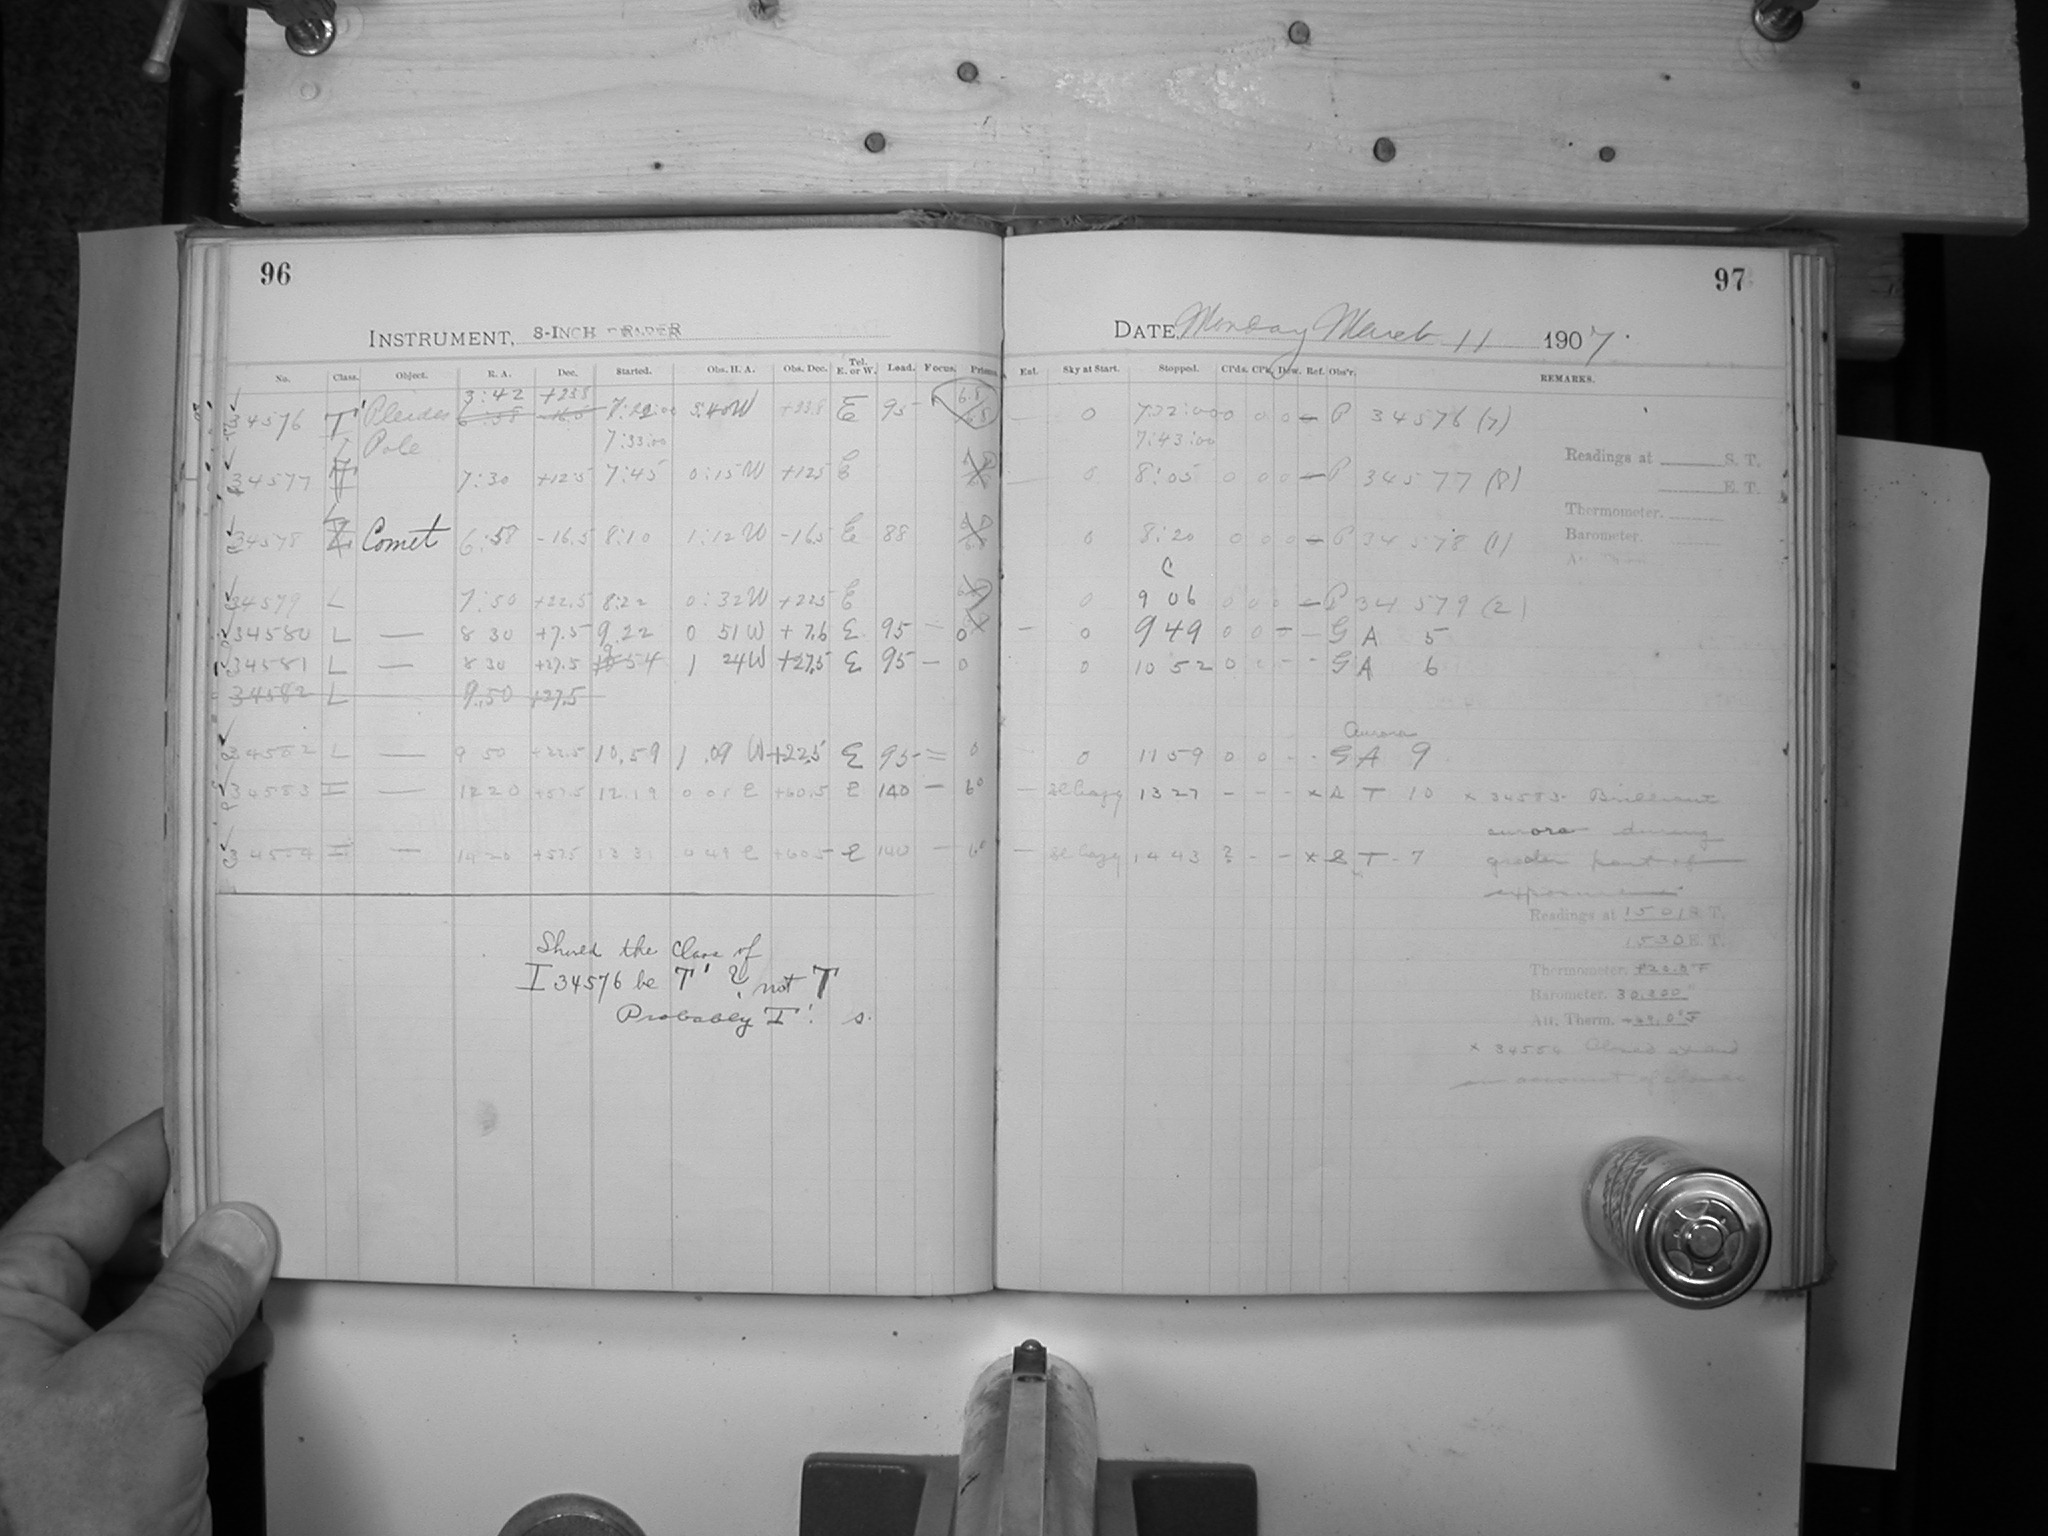 96
INSTRUMENT, 8-INCH DRAPER
No. Class. Object. R. A. Dec. Started. Obs. H. A. Obs. Dec. Tel. E. or W. Lead. Focus. Prisms.
3:42 +23.8
34576 T' Pleides 6:58 -16.5 7:22:00 3:40W +23.8 E 95 6.8
Pole 7:33:00
34577 7:30 +12.5 7:45 0:15W +12.5 E
34578 Comet 6:58 -16.5 8:10 1:12W -16.5 E 88
34579 L 7:50 +22.5 8:22 0:32W +22.5 E
34580 L — 8 30 +7.5 9.22 0 51W +7.6 E 95 — 0
34581 L — 8 30 +27.5 9 54 1 24W +27.5 E 95 — 0
34582 L — 9.50 +27.5
34582 L — 9 50 +22.5 10.59 1 .09 W +22.5 E 95 = 0
34583 I — 12 20 +57.5 12.19 0 01 E +60.5 E 140 — 60
34584 I — 14 20 +57.5 13 31 0 49 E +60.5 E 140 — 60
Should the class of
I 34576 be T' ? not T
Probably I'. s.
97
DATE, Monday March 11 1907.
Ent. Sky at Start. Stopped. Cl'ds. Cl'k. Dew. Ref. Obs'r. REMARKS.
— 0 7:32:00 0 0 0 — P 34576 (7)
7:43:00
— 0 8:05 0 0 0 — P 34577 (8)
0 8:20 0 0 0 — P 34578 (1)
C
0 9 06 0 0 0 — P 34579 (2)
— 0 9 49 0 0 — — G A 5
0 10 52 0 0 - - G A 6
Aurora
0 11 59 0 0 - - G A 9
— Sl hazy 13 27 - - - x A T 10
— Sl hazy 14 43 ? - - x S T - 7
Readings at S. T.
E. T.
Thermometer.
Barometer.
x 34583. Brilliant
aurora during
greater part of
exposure
Readings at 15 01 S. T.
15 30 E. T.
Thermometer.
Barometer. 30.200
Att. Therm.
x 34584 Closed at end
on account of clouds